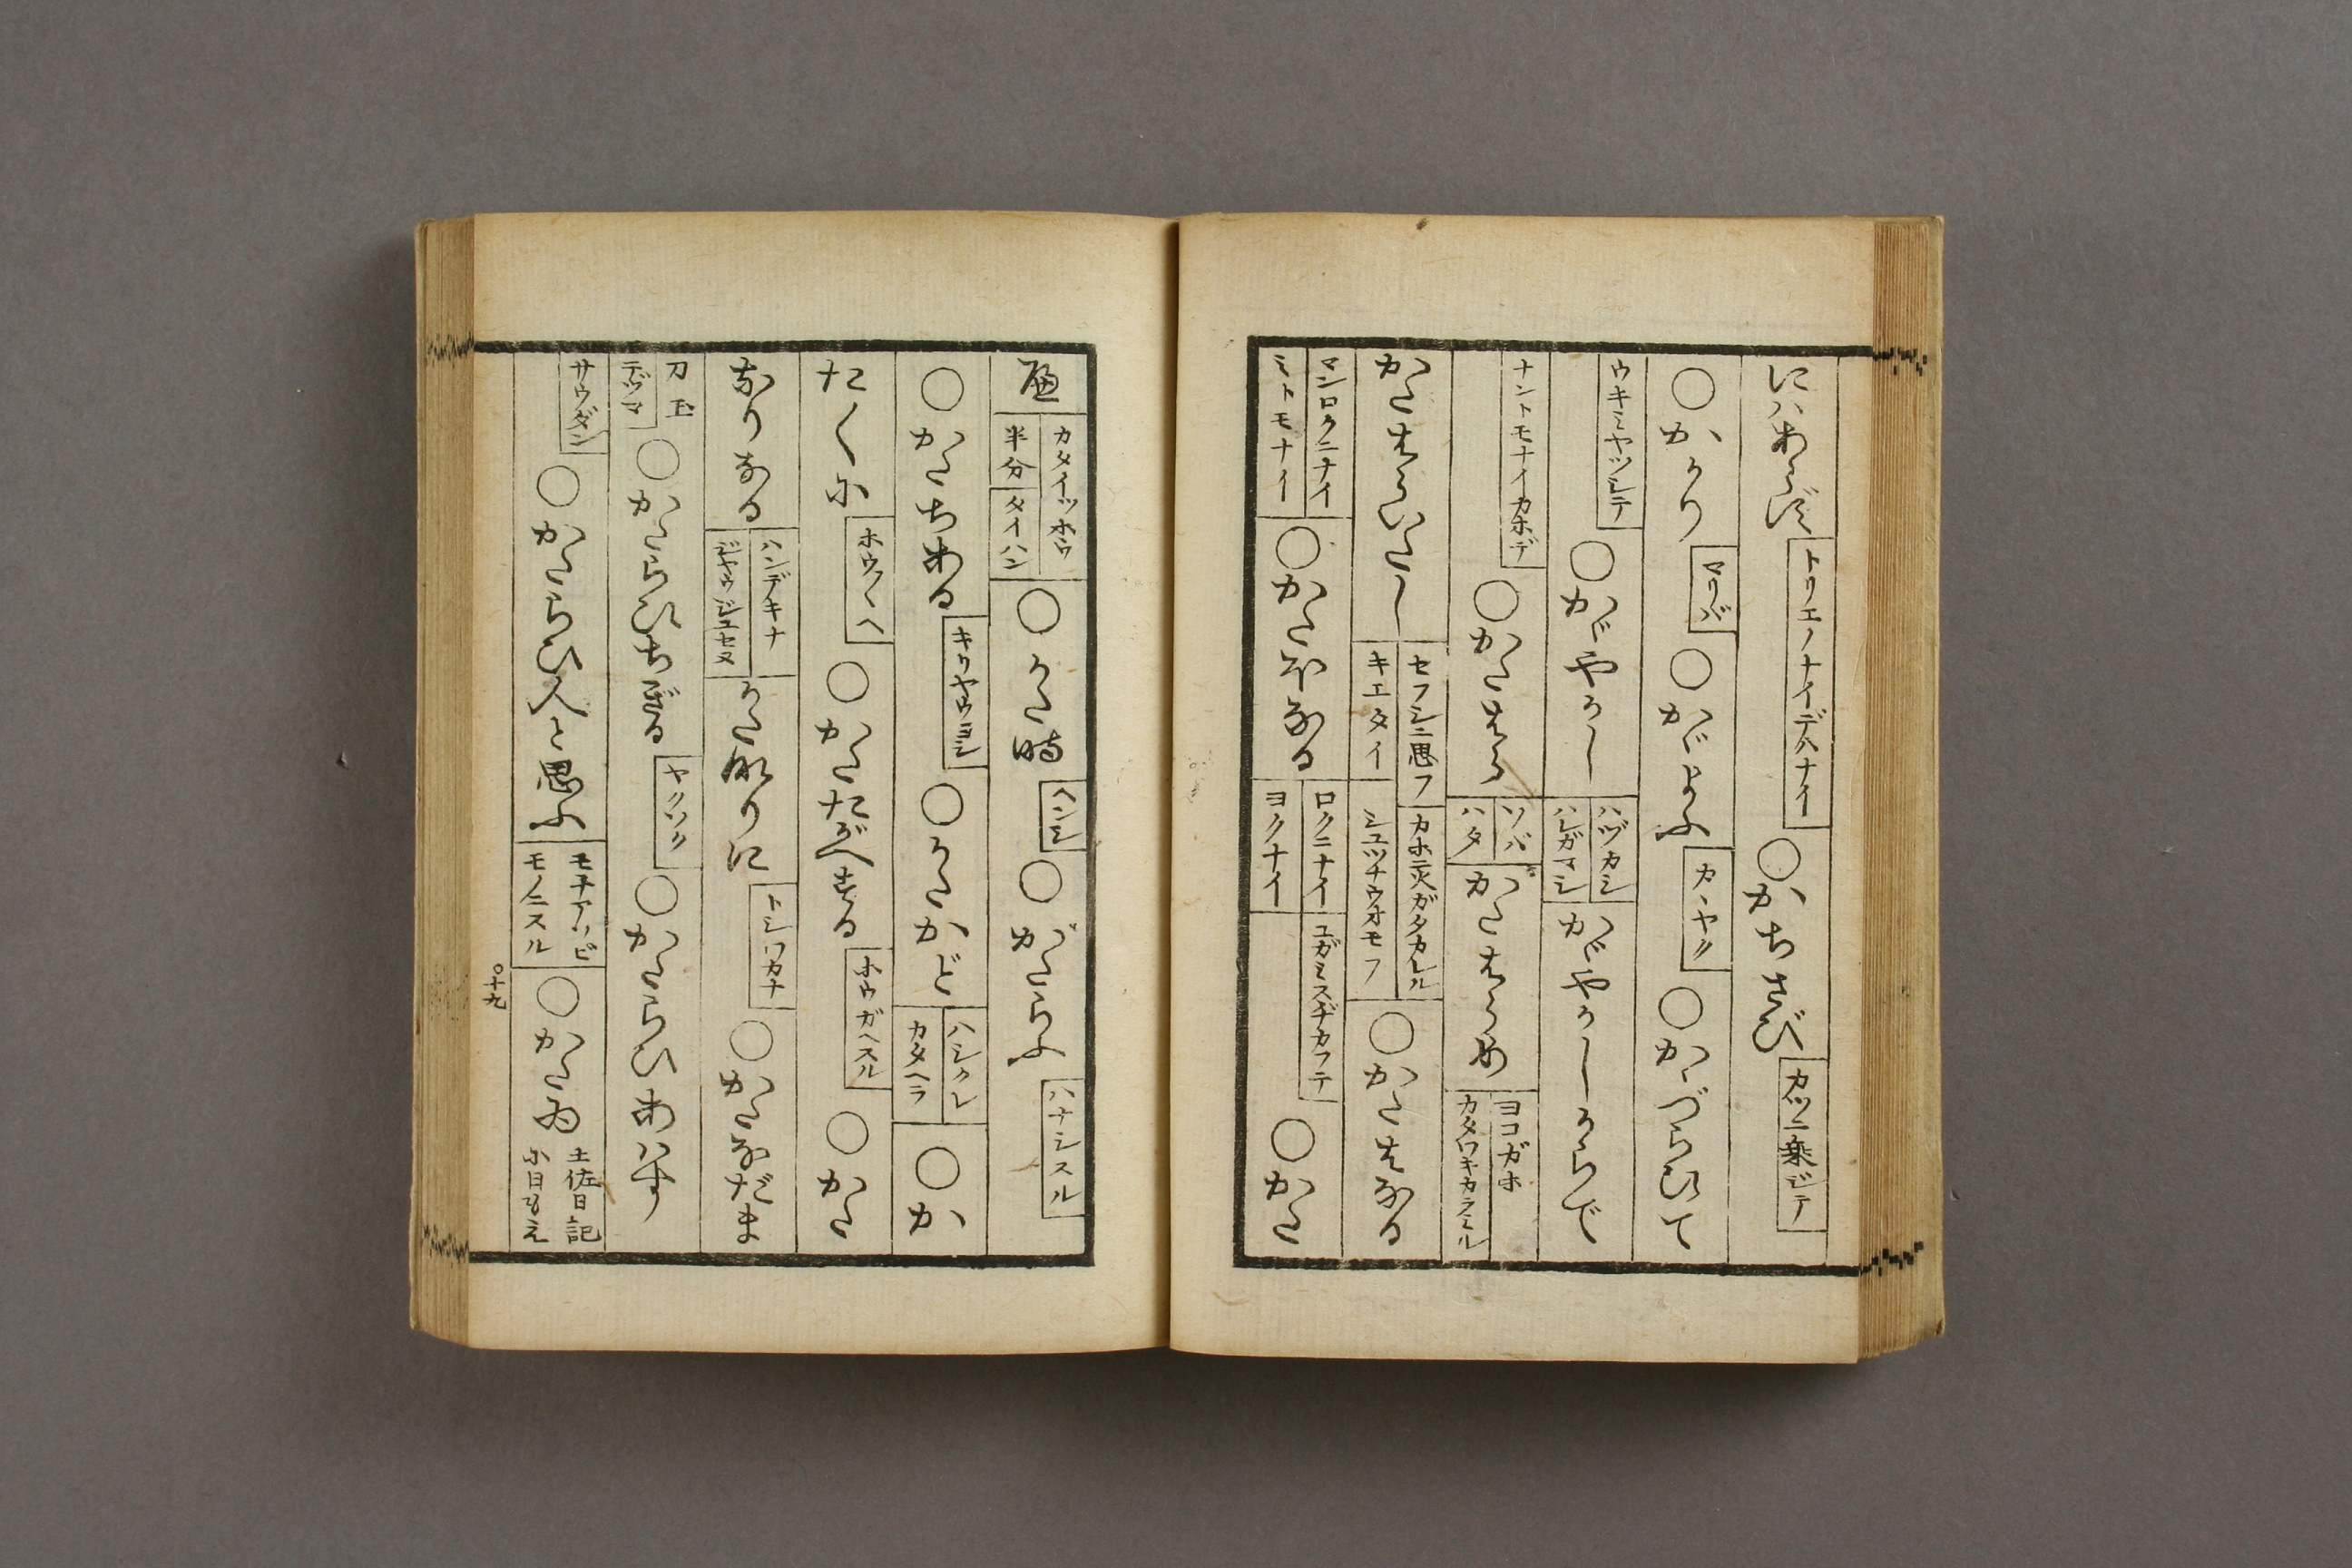 にハあらず トリエノナイデハナイ ○かちさび カツニ乗ジテ
○かゝり マリバ ○かゞよふ カヽヤク ○かゝづらひて
ウキミヤツシテ ○かゞやかし ハヅカシ ハレガマシ かゞやかしからで
ナントモナイカホデ ○かたはら ソバ ハタ かたはらめ ヨコガホ カタワキカラミル
かたはらいたし セフシニ思フ キエタイ カホニ火ガタカルル シユツナウオモフ ○かたはなる
マンロクニナイ ミトモナイ ○かたほなる ロクニナイ ヨクナイ ユガミスヂカフテ ○かた
カタイツホウ 半分 タイハン ○かた時 ヘンシ ○がたらふ ハナシスル
○かたちある キリヤウヨシ ○かたかど ハシクレ カタヘラ ○か
たくに ホウ〳〵ヘ ○かたたがへする ホウガヘスル ○かた
なりなる ハンデキナ ジヤウジユセヌ かた成りに トシワカナ ○かたなだま
刀玉 テヅマ ○かたらひちぎる ヤクソク ○かたらひあハす
サウダン ○かたらひ人と思ふ モチアソビ モノニスル ○かたゐ 土佐日記
○十九